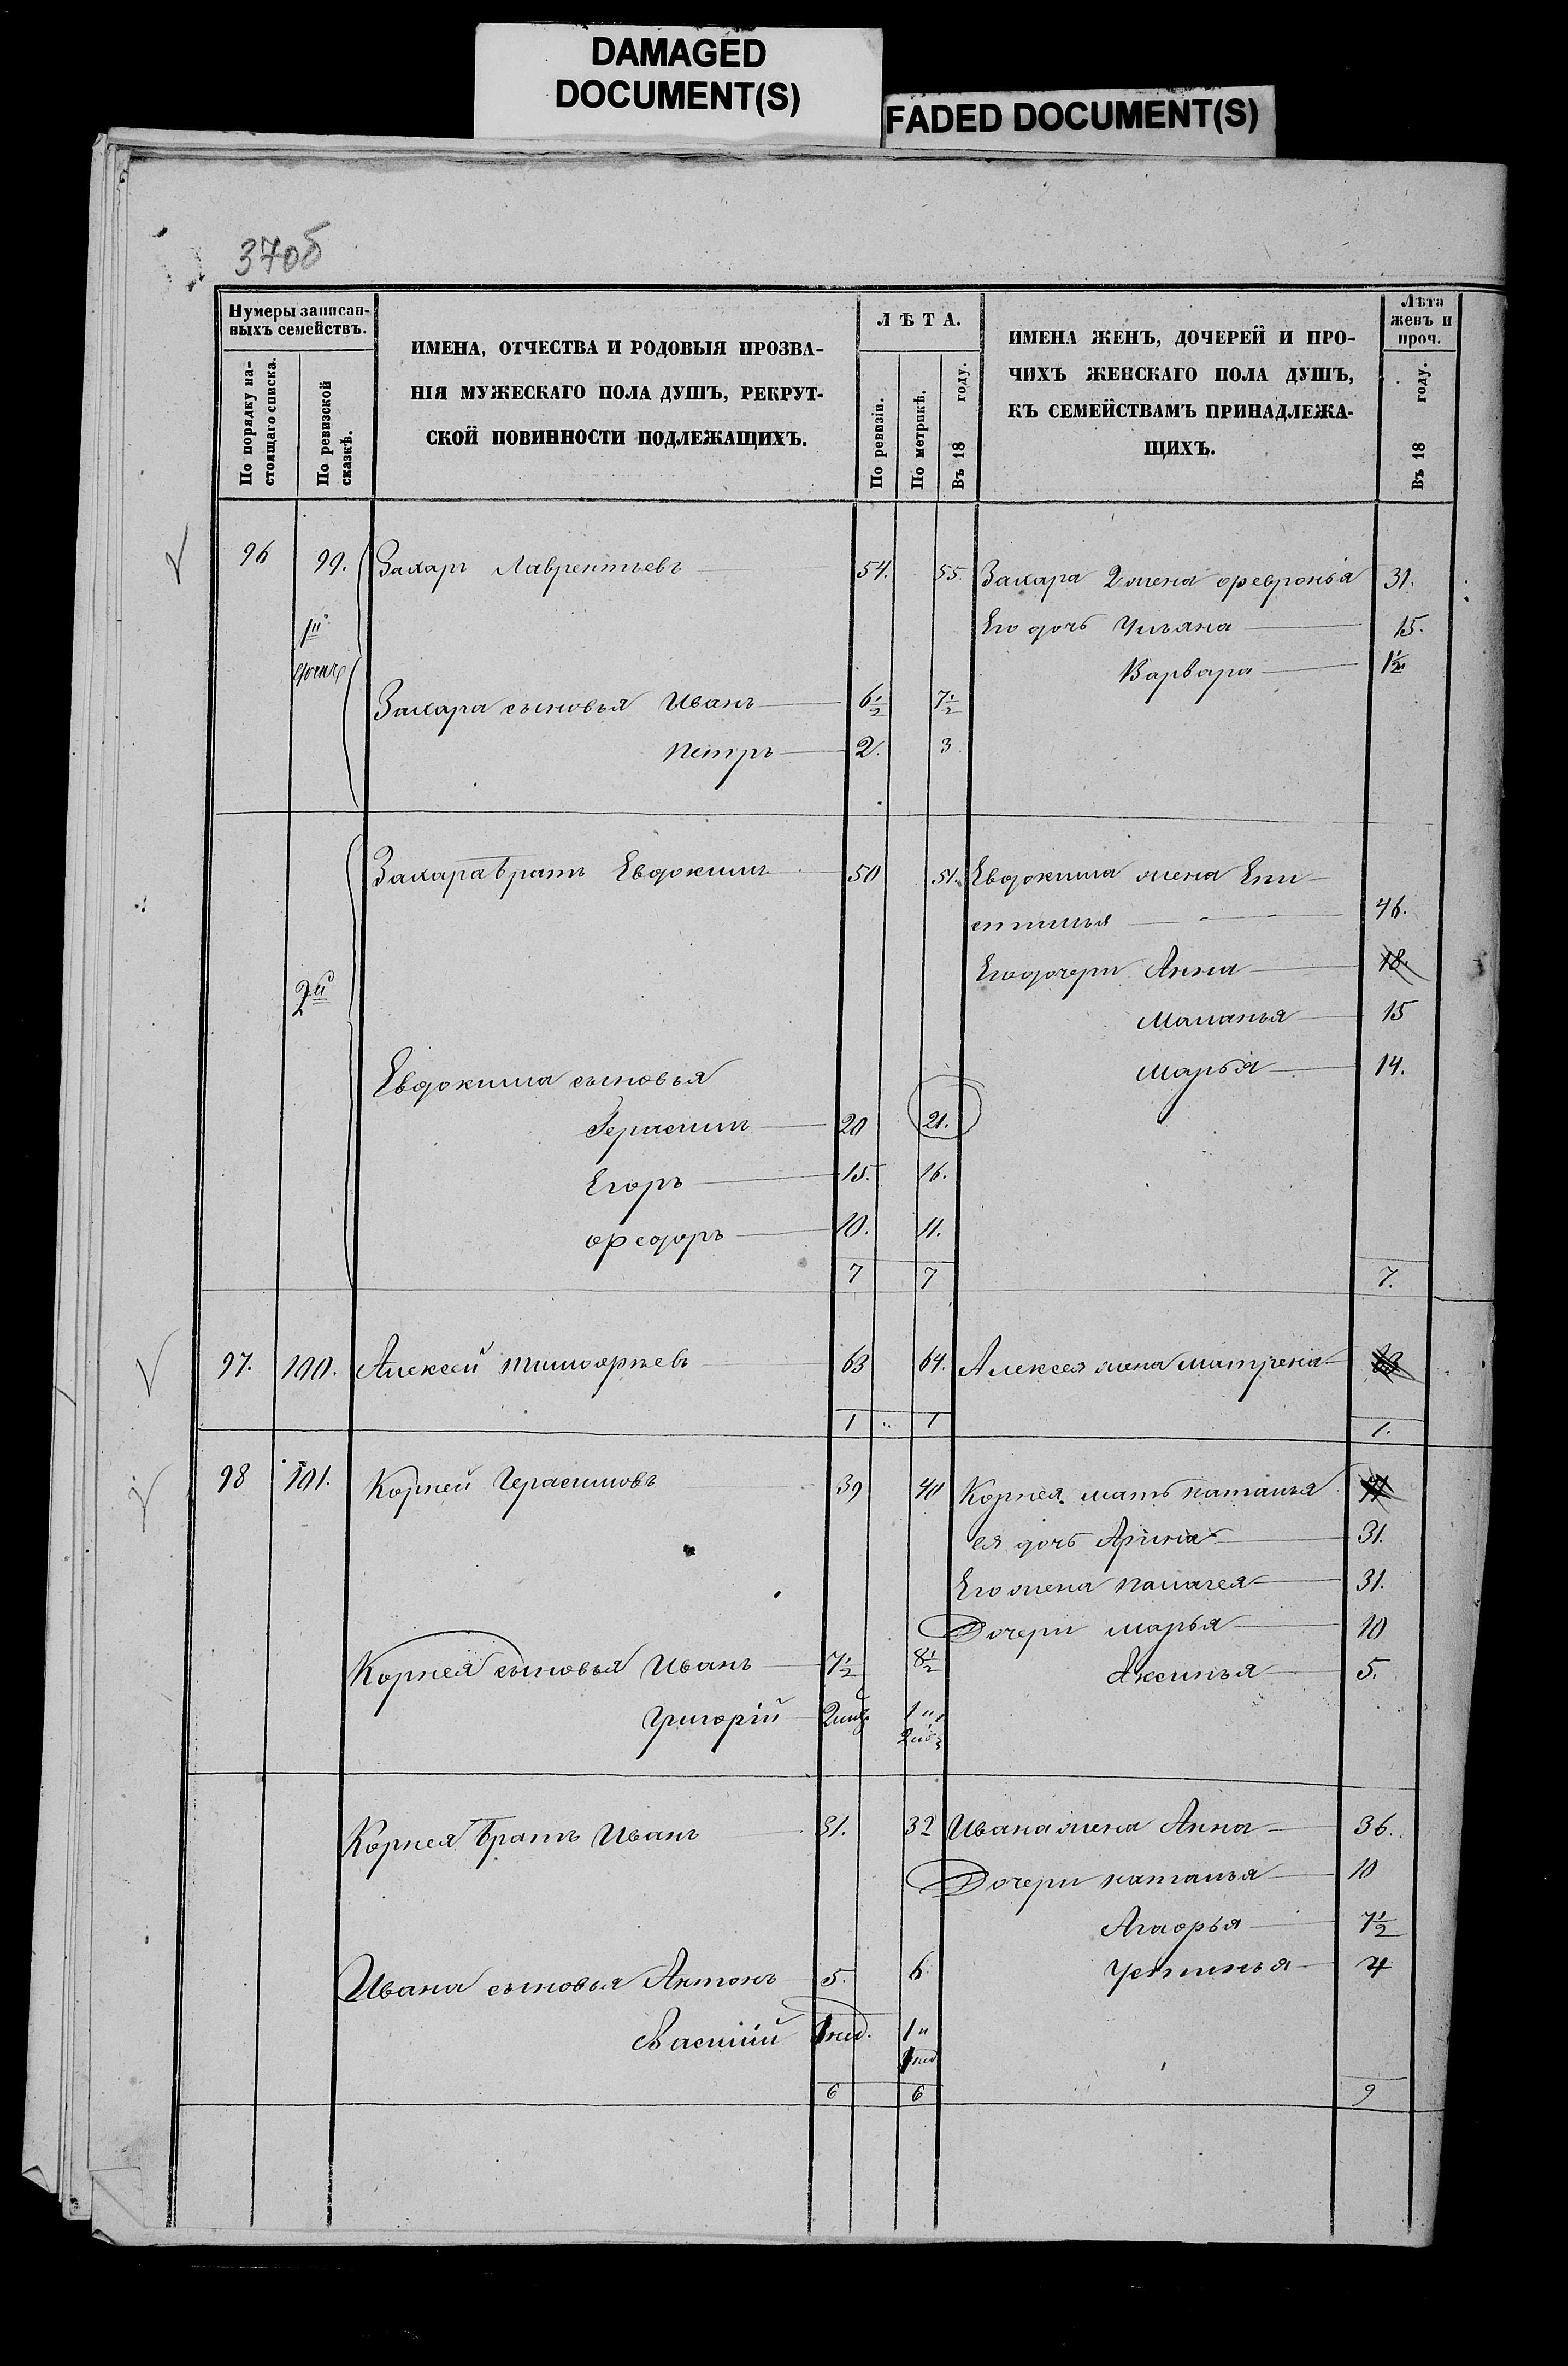 DAMAGED
DOCUMENT(S)
FADED DOCUMENT(S)
370б
Нумеры записан-
ныхъ семействъ.
По порядку на-
стоящаго списка.
По ревизской
сказкѣ.
ИМЕНА, ОТЧЕСТВА И РОДОВЫЯ ПРОЗВА-
НІЯ МУЖЕСКАГО ПОЛА ДУШЪ, РЕКРУТ-
СКОЙ ПОВИННОСТИ ПОДЛЕЖАЩИХЪ.
ЛѢТА.
По ревизіи.
По метрикѣ.
Въ 18 году.
ИМЕНА ЖЕНЪ, ДОЧЕРЕЙ И ПРО-
ЧИХЪ ЖЕНСКАГО ПОЛА ДУШЪ,
КЪ СЕМЕЙСТВАМЪ ПРИНАДЛЕЖА-
ЩИХЪ.
Лѣта
женъ и
проч.
Въ 18 году.
96 99. Захаръ Лаврентьевъ 54. 55. Захара 2 жена Февронья 31.
1й Его дочь Ульяна 15.
Варвара 1½
Захара сыновья Иванъ 6½ 7½
Петръ 2. 3
Захара братъ Евдокимъ 50 51. Евдокима жена Епи-
стимья 46.
2й Его дочери Анна 18.
Маланья 15
Марья 14.
Евдокима сыновья
Герасимъ 20 21.
Егоръ 15. 16.
Федоръ 10. 11.
7 7 7.
97. 100. Алексей Тимофеевъ 63 64. Алексея жена Матрена
1 1 1.
98 101. Корней Герасимовъ 39 40 Корнея мать Наталья
ея дочь Арина 31.
Его жена Палагея 31.
Дочери Марья 10
Корнея сыновья Иванъ 7½ 8½ Аксинья 5.
Григорій
Корнея братъ Иванъ 31. 32 Ивана жена Анна 36.
Дочери Наталья 10
Агафья 7½
Ивана сыновья Антонъ 5. 6. Устинья 4
Василій 1 нед. 1
1 нед
6 6 9